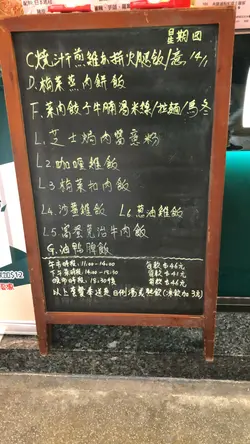 星期四
C. 燒汁煎雞扒拼火腿飯/意 14/1
D. 梅菜蒸肉餅飯
F. 菜肉餃子牛腩湯米線/拉麵/烏冬
L1. 芝士焗肉醬意粉
L2 咖喱雞飯
L3 梅菜扣肉飯
L4. 沙薑雞飯 L6 蔥油雞飯
L5. 窩蛋免治牛肉飯
G. 油鴨脾飯
午市時段: 11:00 - 14:00 每款 $46元
下午茶時段: 14:00 - 18:30 每款 $41元
晚市時段: 18:30後 每款 $46元
以上套餐奉送是日例湯或熱飲(凍飲加3元)